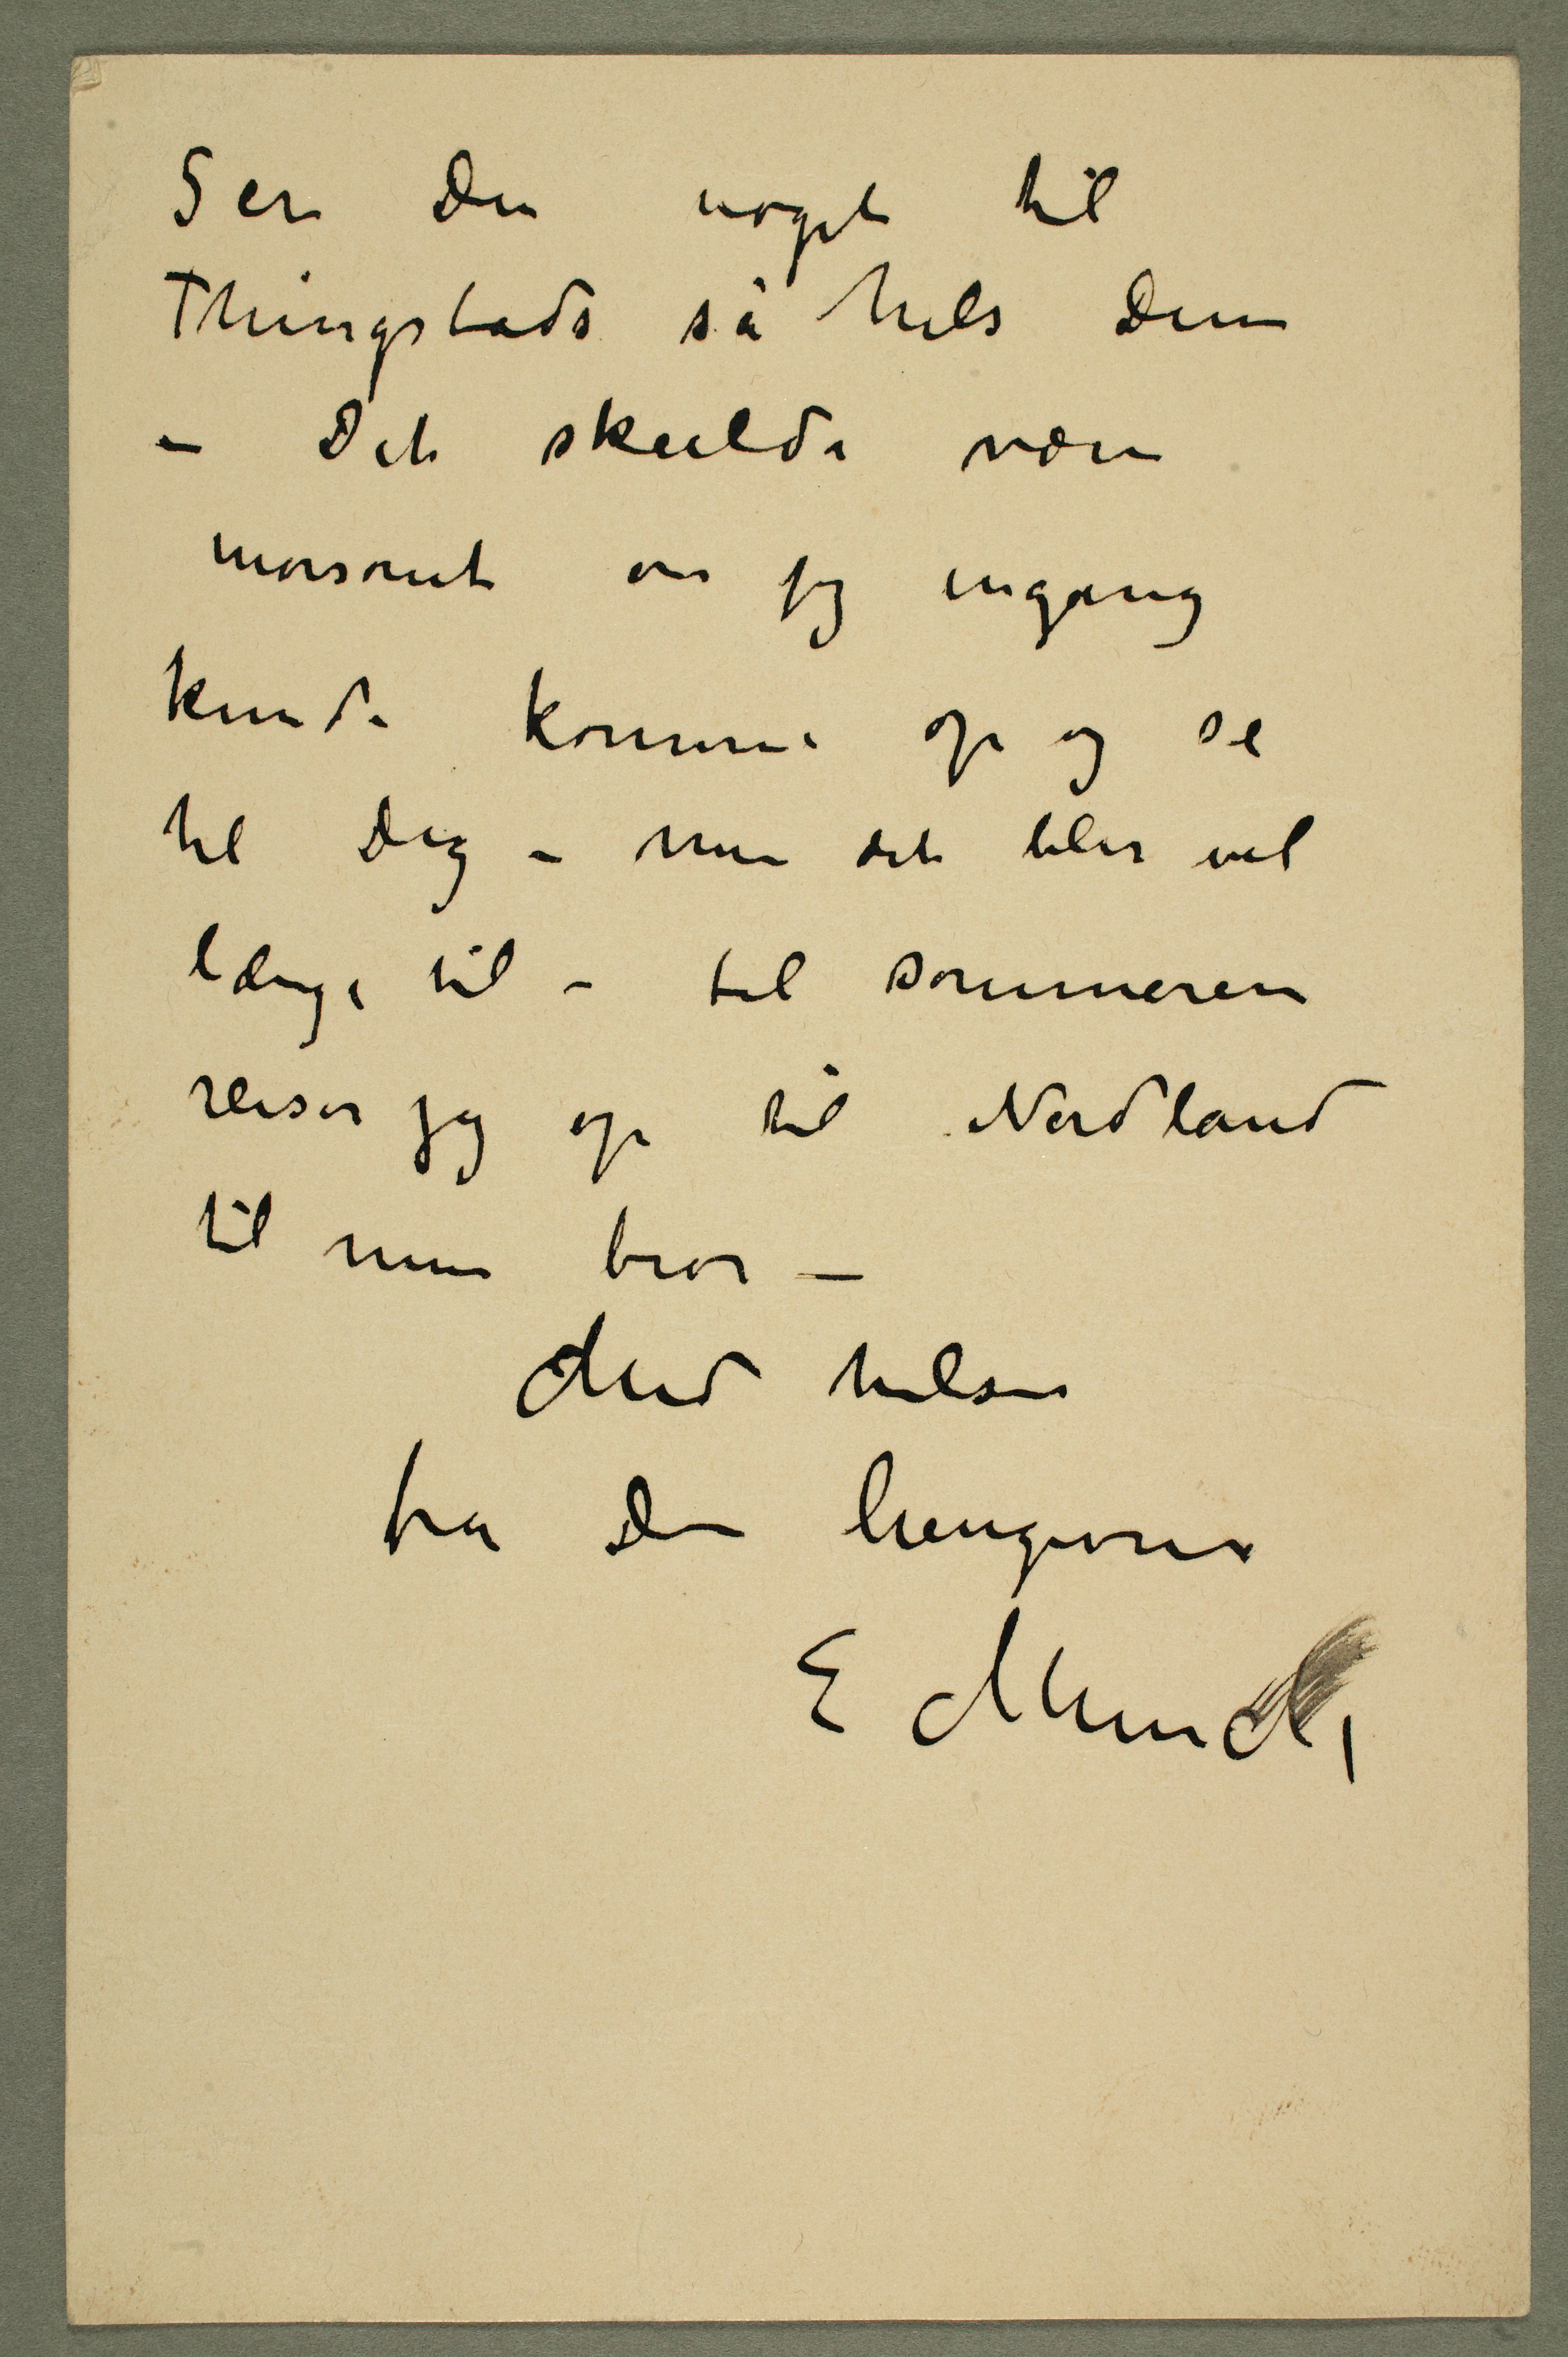 Ser Du noget til
Thingstads så hels dem
– Det skulde være
morsomt om jeg engang
kunde komme op og se
til Dig – men det blir vel
længe til – til sommeren
reiser jeg op til Nordland
til min bror –
Med hilsen
fra Din hengivne
E Munch